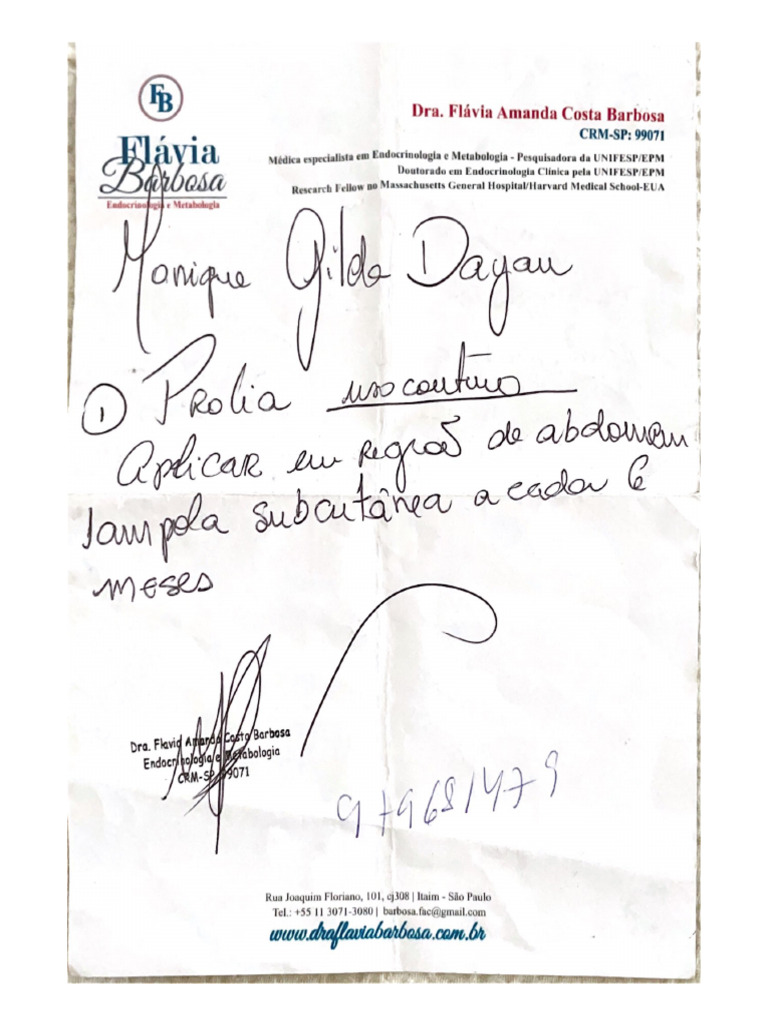 FB
Flávia
Barbosa
Endocrinologia e Metabologia
Dra. Flávia Amanda Costa Barbosa
CRM-SP: 99071
Médica especialista em Endocrinologia e Metabologia - Pesquisadora da UNIFESP/EPM
Doutorado em Endocrinologia Clínica pela UNIFESP/EPM
Research Fellow no Massachusetts General Hospital/Harvard Medical School-EUA
Monique Gilda Dayan
1 Prolia uso contínuo
Aplicar em região de abdomem
1 ampola subcutânea a cada 6
meses
Dra. Flavia Amanda Costa Barbosa
Endocrinologia e Metabologia
CRM-SP 99071
979681479
Rua Joaquim Floriano, 101, cj308 | Itaim - São Paulo
Tel.: +55 11 3071-3080 | barbosa.fac@gmail.com
www.draflaviabarbosa.com.br